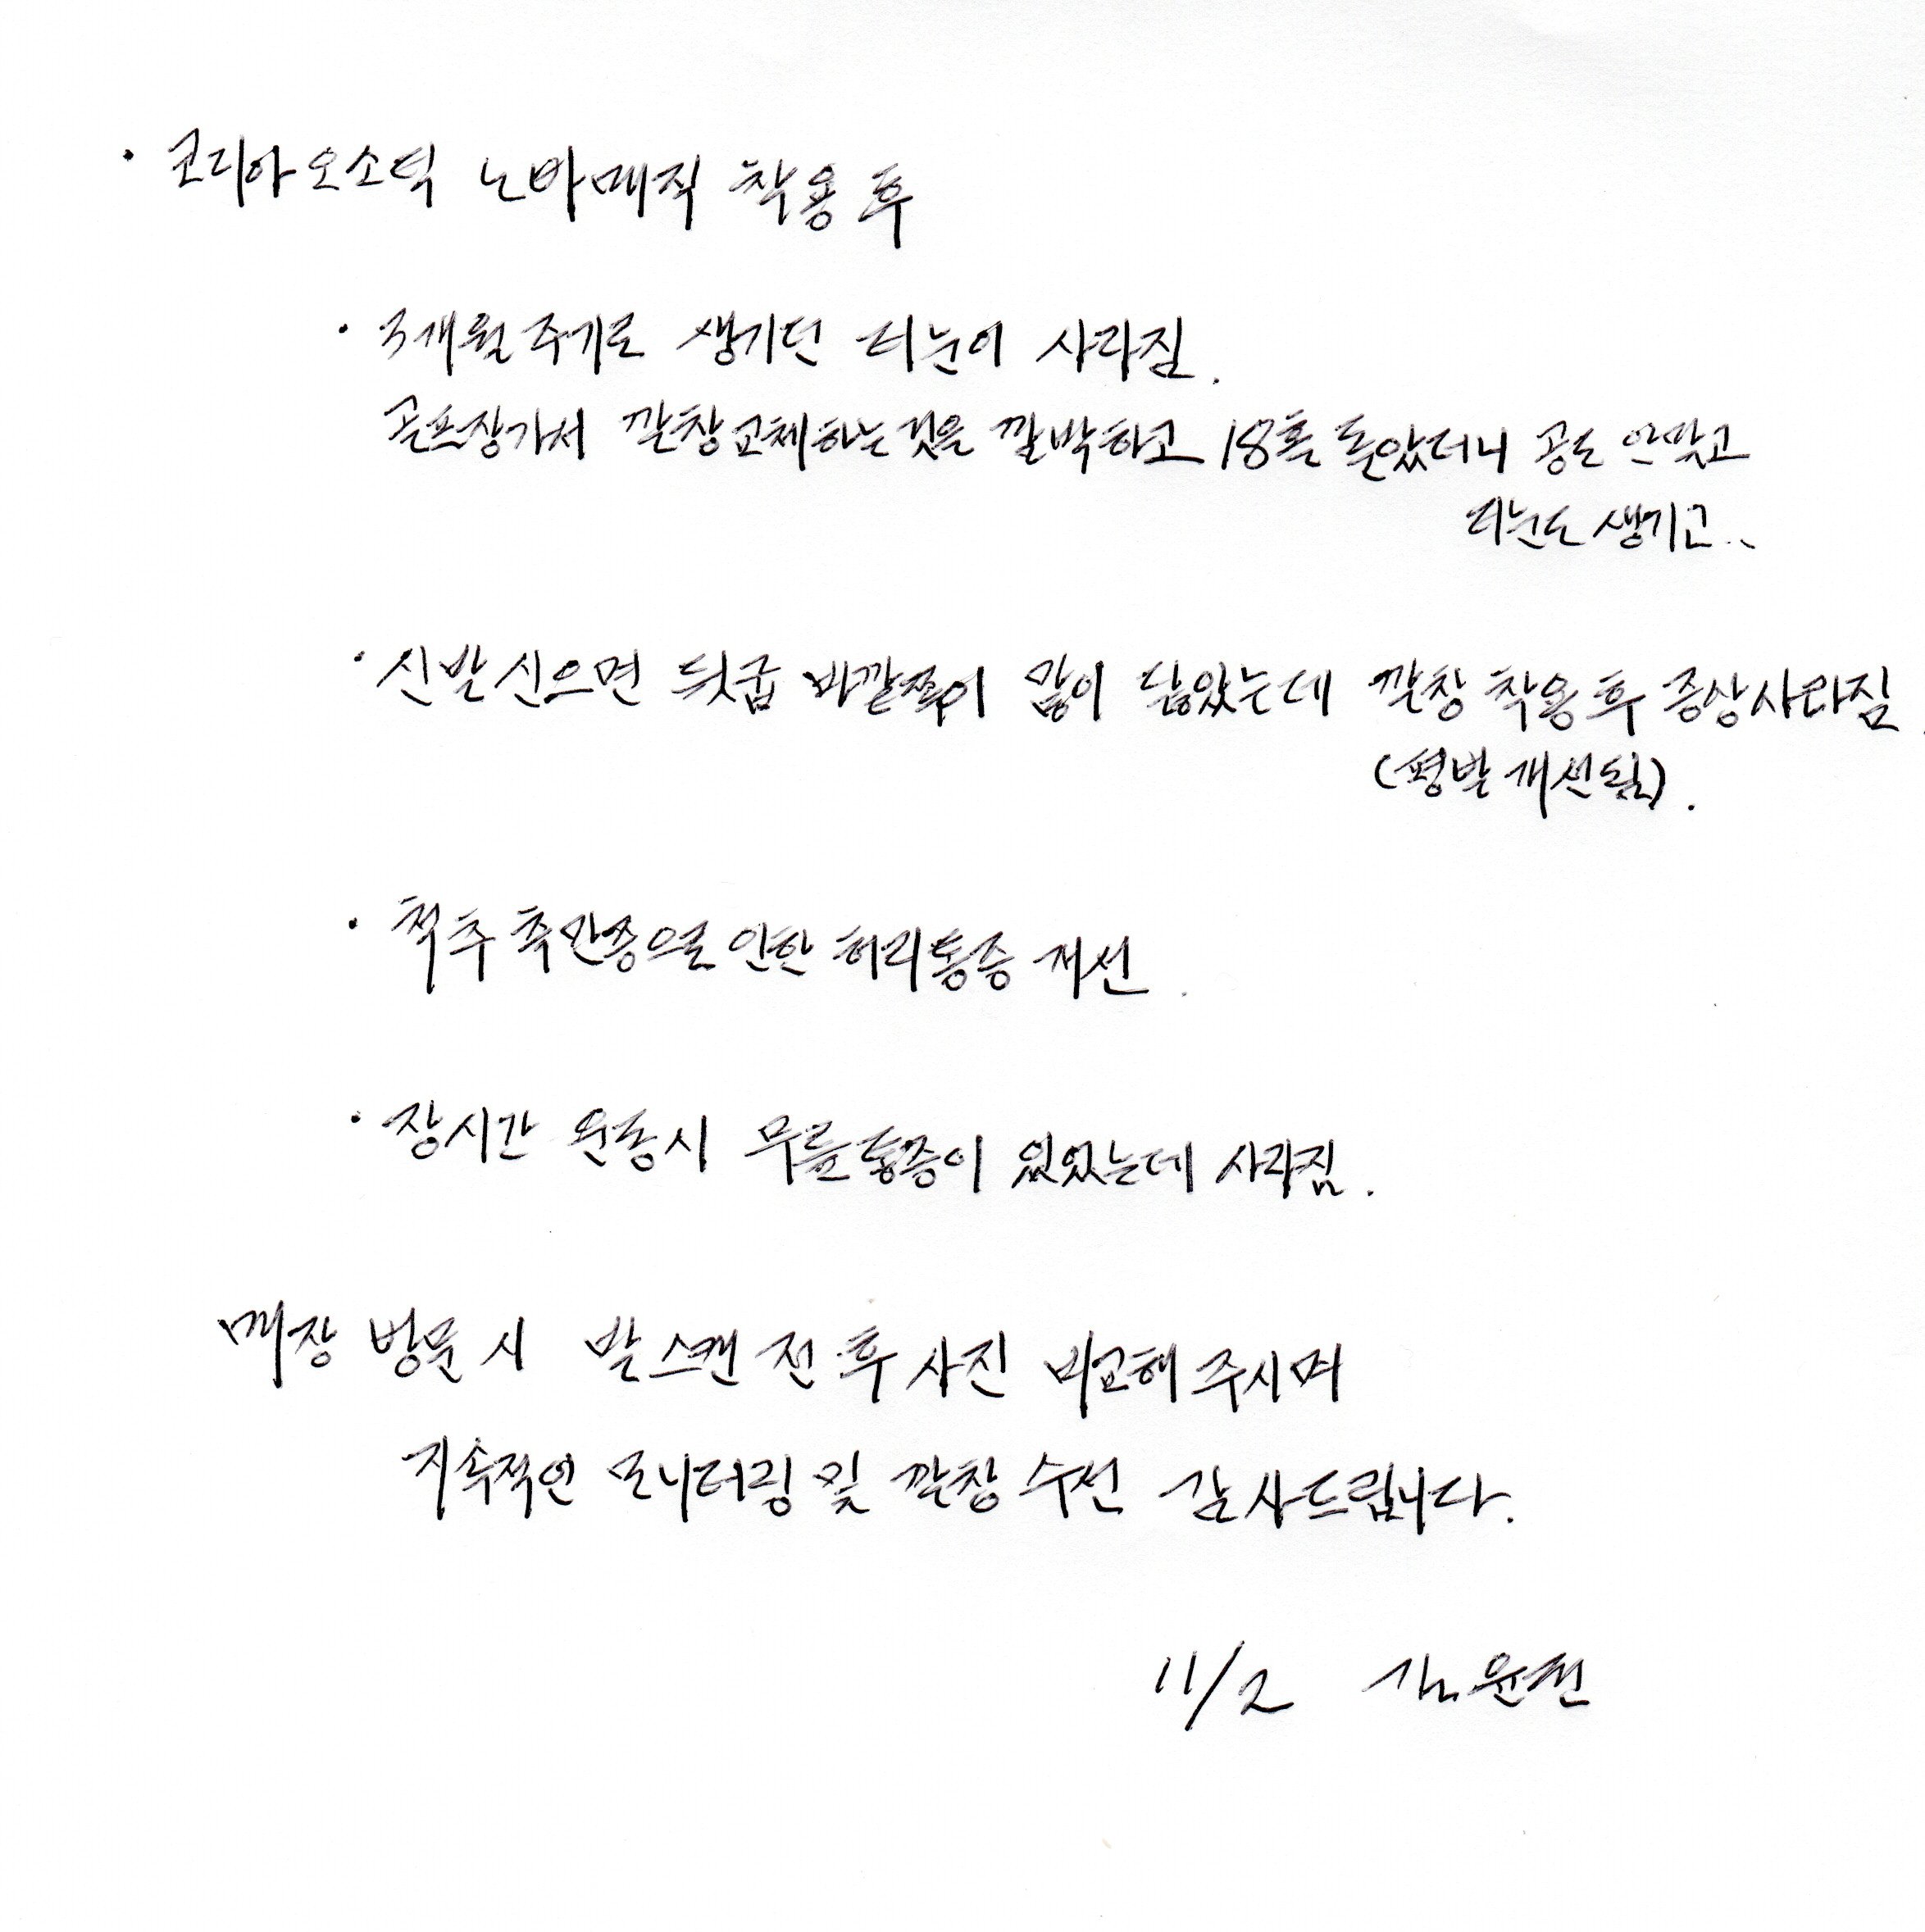 · 코리아 오소틱 노바매직 착용 후
· 3개월 주기로 생기던 티눈이 사라짐.
골프장가서 깔창교체하는것을 깜박하고 18홀 돌았더니 공도 안맞고
티눈도 생기고..
· 신발 신으면 뒷굽 바깥쪽이 많이 닳았는데 깔창 착용 후 증상사라짐.
(평발 개선됨).
· 척추 측만증으로 인한 허리통증 개선.
· 장시간 운동시 무릎통증이 있었는데 사라짐.
매장 방문 시 발 스캔 전·후 사진 비교해 주시며
지속적인 모니터링 및 깔창 수선 감사드립니다.
11/2 김윤전